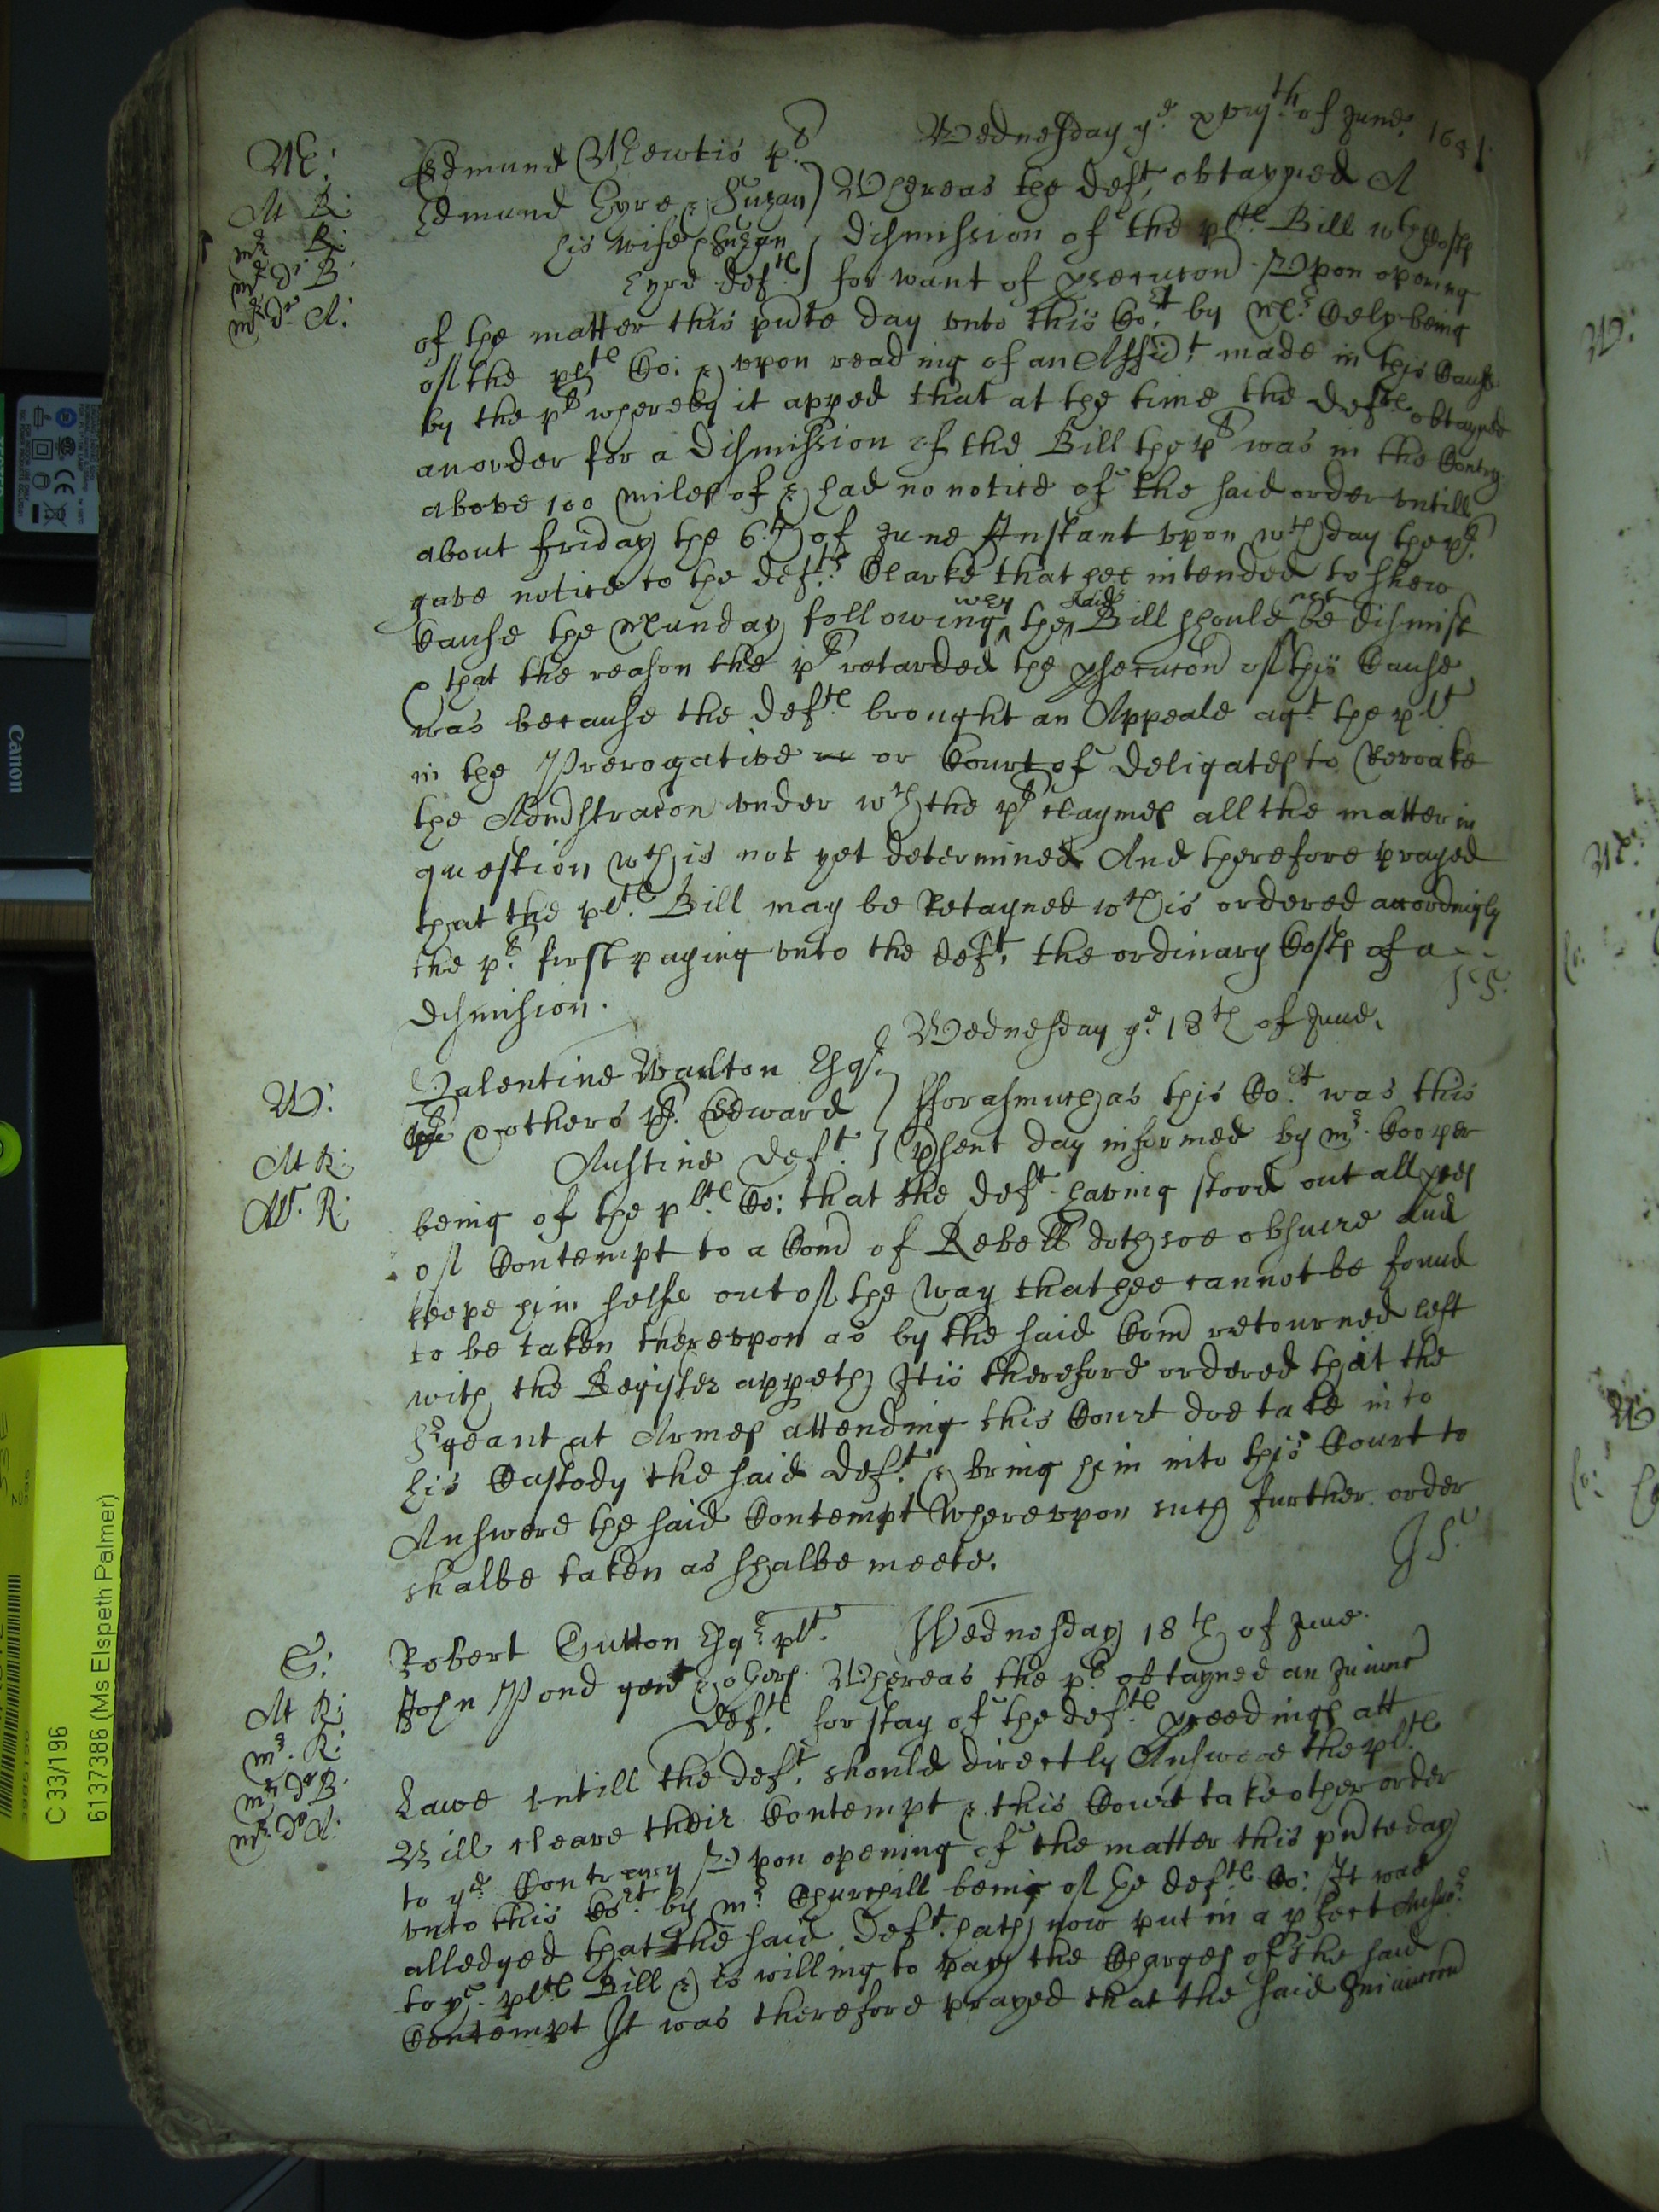 Wednesday ye xviijth of June 1651
M:
Edmund Mewtis plt
At R:
Edmund Eyre & Suzan Whereas the deft obtayned A
mr R:
his wife Suzan dismission of the plts Bill wth Costs
mr d: B:
Eyre defts for want of psecucon Vpon opening
mr d: A:
of the matter this pnte day vnto this Cort by Mr being
of the plts Co: & vpon reading of an Affidt made in this Cause
by the plt whereby it apped that at the time the defts obtayned
an order for a dismission of the Bill the plt was in the Contry
above 100 miles of & had no notice of the said order vntill
about friday the 6th of June Instant vpon wch day the plt
gave notice to the defts Clarke that hee intended to shew
why said not
Cause the Munday following the Bill should be dismist
& that the reason the plt retarded the psecucon of this Cause
was because the defts brought an Appeale agt the plt
in the Prerogative or Court of Deligates to Revoake
the Admstracon vnder wch the plt claymes all the matter in
question wch is not yet determined And therefore prayed
that the plts Bill may be Retayned wch is ordered accordingly
the plt first paying vnto the deft the ordinary Costs of a
dismission.
Wednesday ye 18th of June.
W:
Valentine Waulton Esqr
& others plt Edward fforasmuch as this Cort was this
At R:
Austine deft psent day informed by mr Cooper
W. R:
being of the plts Co: that the deft having stood out all pces
of Contempt to a Com of Rebell doth soe obscure and
keepe him selfe out of the way that hee cannot be found
to be taken therevpon as by the said Com retourned left
with the Register appeth It is therefore ordered that the
Sergeant at Armes attending this Court doe take into
his Custody the said deft & bring him into this Court to
Answere the said Contempt Wherevpon such further order
shalbe taken as shalbe meete.
S:
Robert Sutton Esqr plt Wednesday 18th of June.
At R:
John Pond gent & others Whereas the plt obtayned an Iniunc
mr R:
defts for stay of the defts pceedings att
mr dr B:
Lawe vntill the deft should directly Answere the plts
mr dr A:
Bill cleare their Contempt & this Court take other order
to ye Contrary Vpon opening of the matter this pnte day
vnto this Cort by mr Churchill being of the defts Co: It was
alledged that the said Deft hath now put in a pfect Answer
to ye plts Bill & is willing to pay the Charges of the said
Contempt It was therefore prayed that the said Iniunccon
Canon
C 33/196
6137386 (Ms Elspeth Palmer)